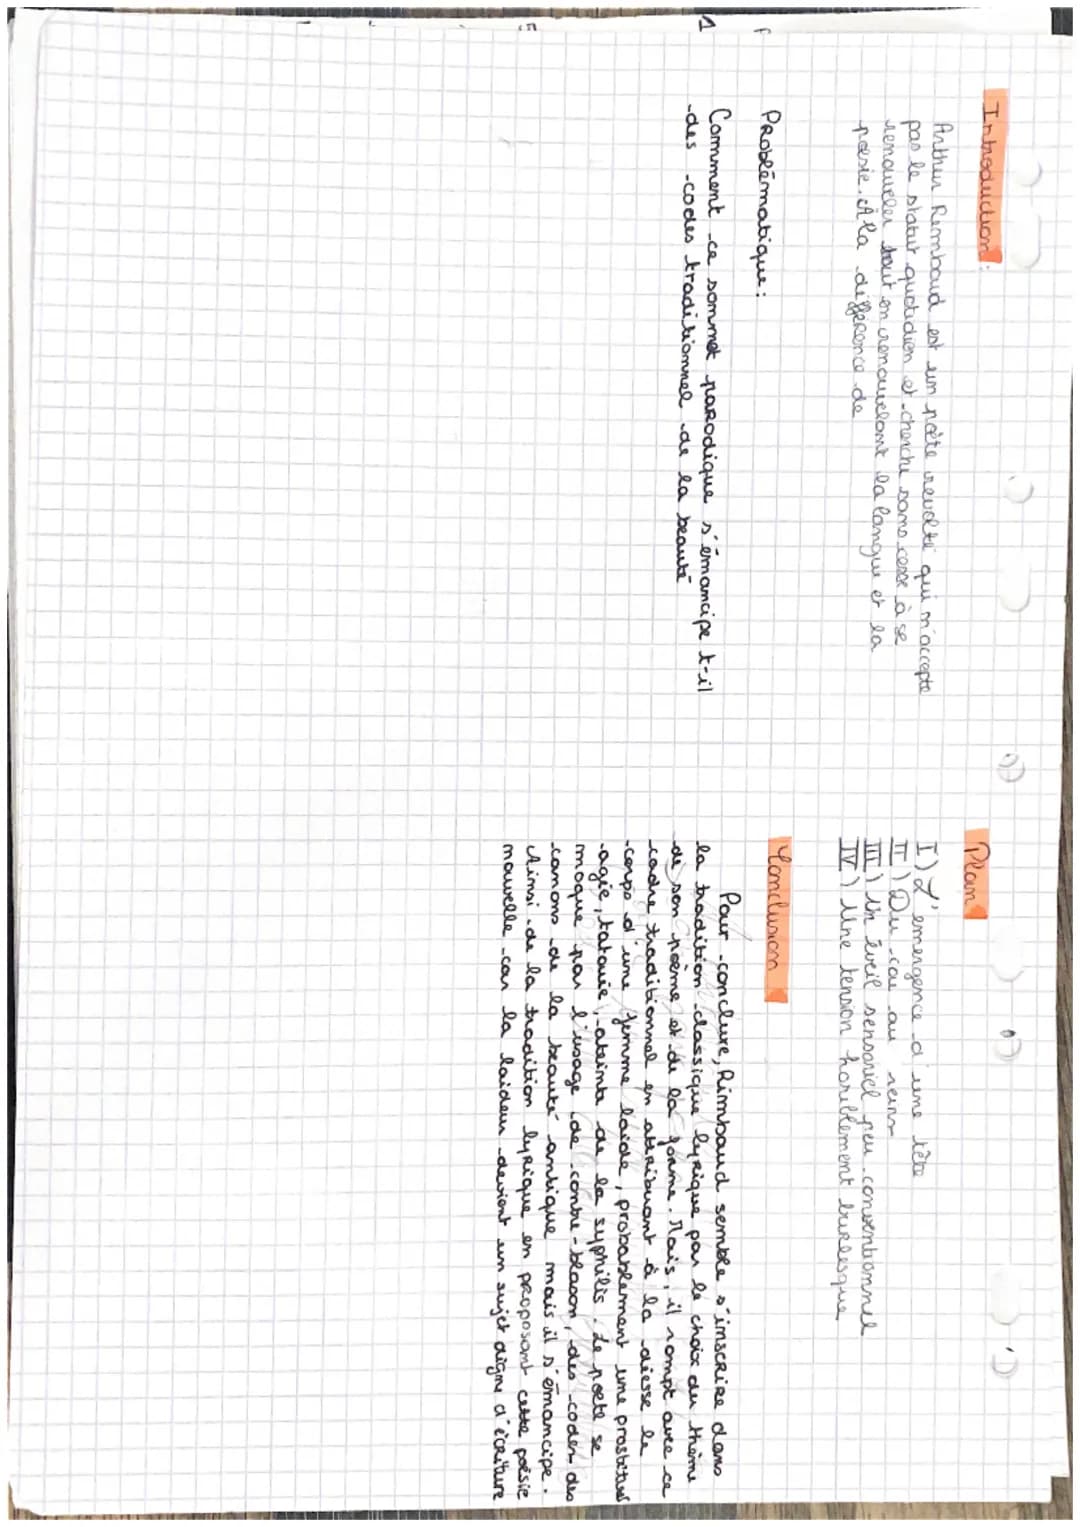 Introduction:
Arthur Rimbaud est un poète revolté qui n'accepte
pas le statut quotidien et cherche sans cesse à se
renouveler tout en renouvelant la langue et la
poésie. A la différence de
Problématique:
Comment ce sonnet parodique s'émancipe t-il
des codes traditionnel de la beauté
Plan
I) L'emergence d'une tête
II) Du cou au reins
III) Un éveil sensoriel peu conventionnel
IV) Une tension horriblement burlesque
Conclusion
Pour conclure, Rimbaud semble s'inscrire dans
la tradition classique lyrique par le choix du thème
de son poème et de la forme. Mais, il rompt avec ce
cadre traditionnel en attribuant à la déesse le
corps d'une femme laide, probablement une prostituée
agée, tatouée, ateinte de la syphilis. Le poète se
moque par l'usage de contre-blason, des codes des
canons de la beauté antique mais il s'émancipe.
Ainsi de la tradition lyrique en proposant cette poésie
nouvelle car la laideur devient un sujet digne d'écriture